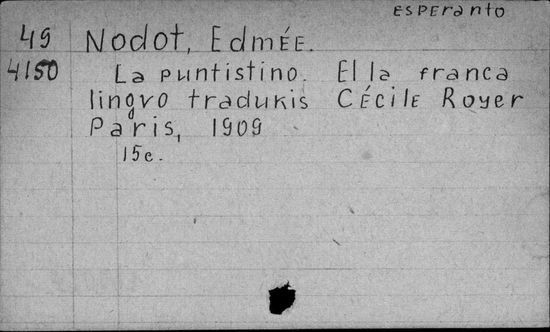 ESPEranto
49 Nodot, Edmée.
4150 La puntistino. El la franca
lingvo tradukis Cécile Royer
Paris, 1909
15c.